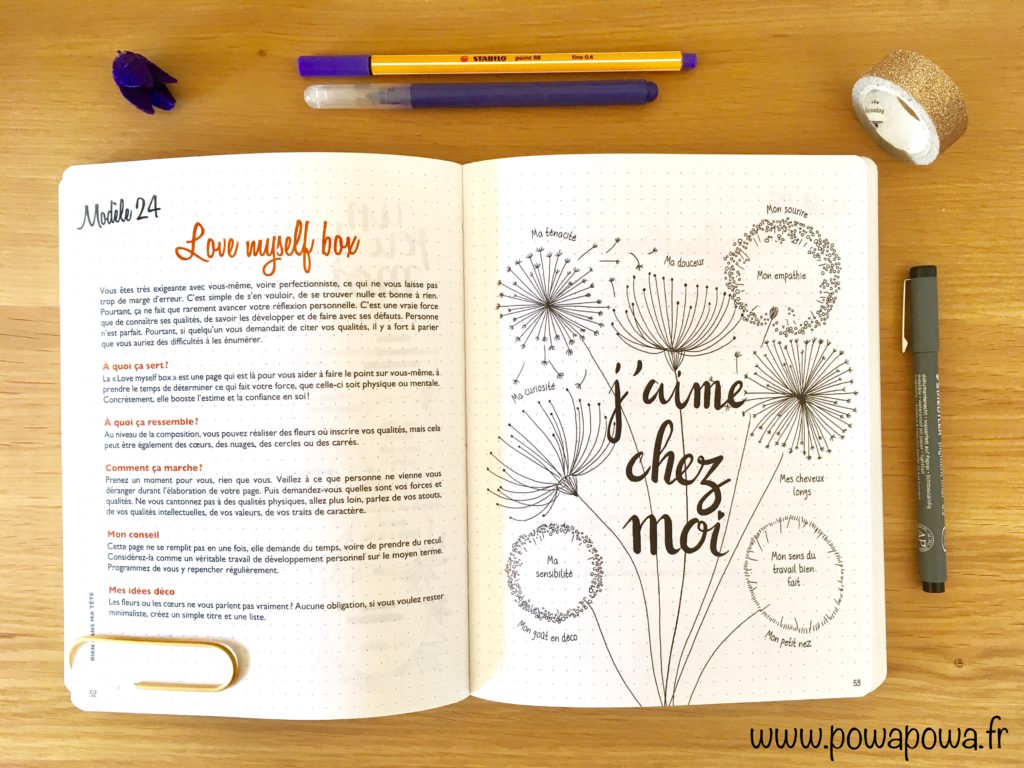 STABILO point 88 fine 0,4
Modèle 24
Love myself box
Vous êtes très exigeante avec vous-même, voire perfectionniste, ce qui ne vous laisse pas
trop de marge d'erreur. C'est simple de s'en vouloir, de se trouver nulle et bonne à rien.
Pourtant, ça ne fait que rarement avancer votre réflexion personnelle. C'est une vraie force
que de connaître ses qualités, de savoir les développer et de faire avec ses défauts. Personne
n'est parfait. Pourtant, si quelqu'un vous demandait de citer vos qualités, il y a fort à parier
que vous auriez des difficultés à les énumérer.
À quoi ça sert ?
La « Love myself box » est une page qui est là pour vous aider à faire le point sur vous-même, à
prendre le temps de déterminer ce qui fait votre force, que celle-ci soit physique ou mentale.
Concrètement, elle booste l'estime et la confiance en soi !
À quoi ça ressemble ?
Au niveau de la composition, vous pouvez réaliser des fleurs où inscrire vos qualités, mais cela
peut être également des cœurs, des nuages, des cercles ou des carrés.
Comment ça marche ?
Prenez un moment pour vous, rien que vous. Veillez à ce que personne ne vienne vous
déranger durant l'élaboration de votre page. Puis demandez-vous quelles sont vos forces et
qualités. Ne vous cantonnez pas à des qualités physiques, allez plus loin, parlez de vos atouts,
de vos qualités intellectuelles, de vos valeurs, de vos traits de caractère.
Mon conseil
Cette page ne se remplit pas en une fois, elle demande du temps, voire de prendre du recul.
Considérez-la comme un véritable travail de développement personnel sur le moyen terme.
Programmez de vous y repencher régulièrement.
Mes idées déco
Les fleurs ou les cœurs ne vous parlent pas vraiment ? Aucune obligation, si vous voulez rester
minimaliste, créez un simple titre et une liste.
52
Mon sourire
Ma ténacité
Ma douceur
Mon empathie
Ma curiosité
j'aime
chez
moi
Mes cheveux
longs
Ma
sensibilité
Mon sens du
travail bien
fait
Mon goût en déco
Mon petit nez
53
www.powapowa.fr